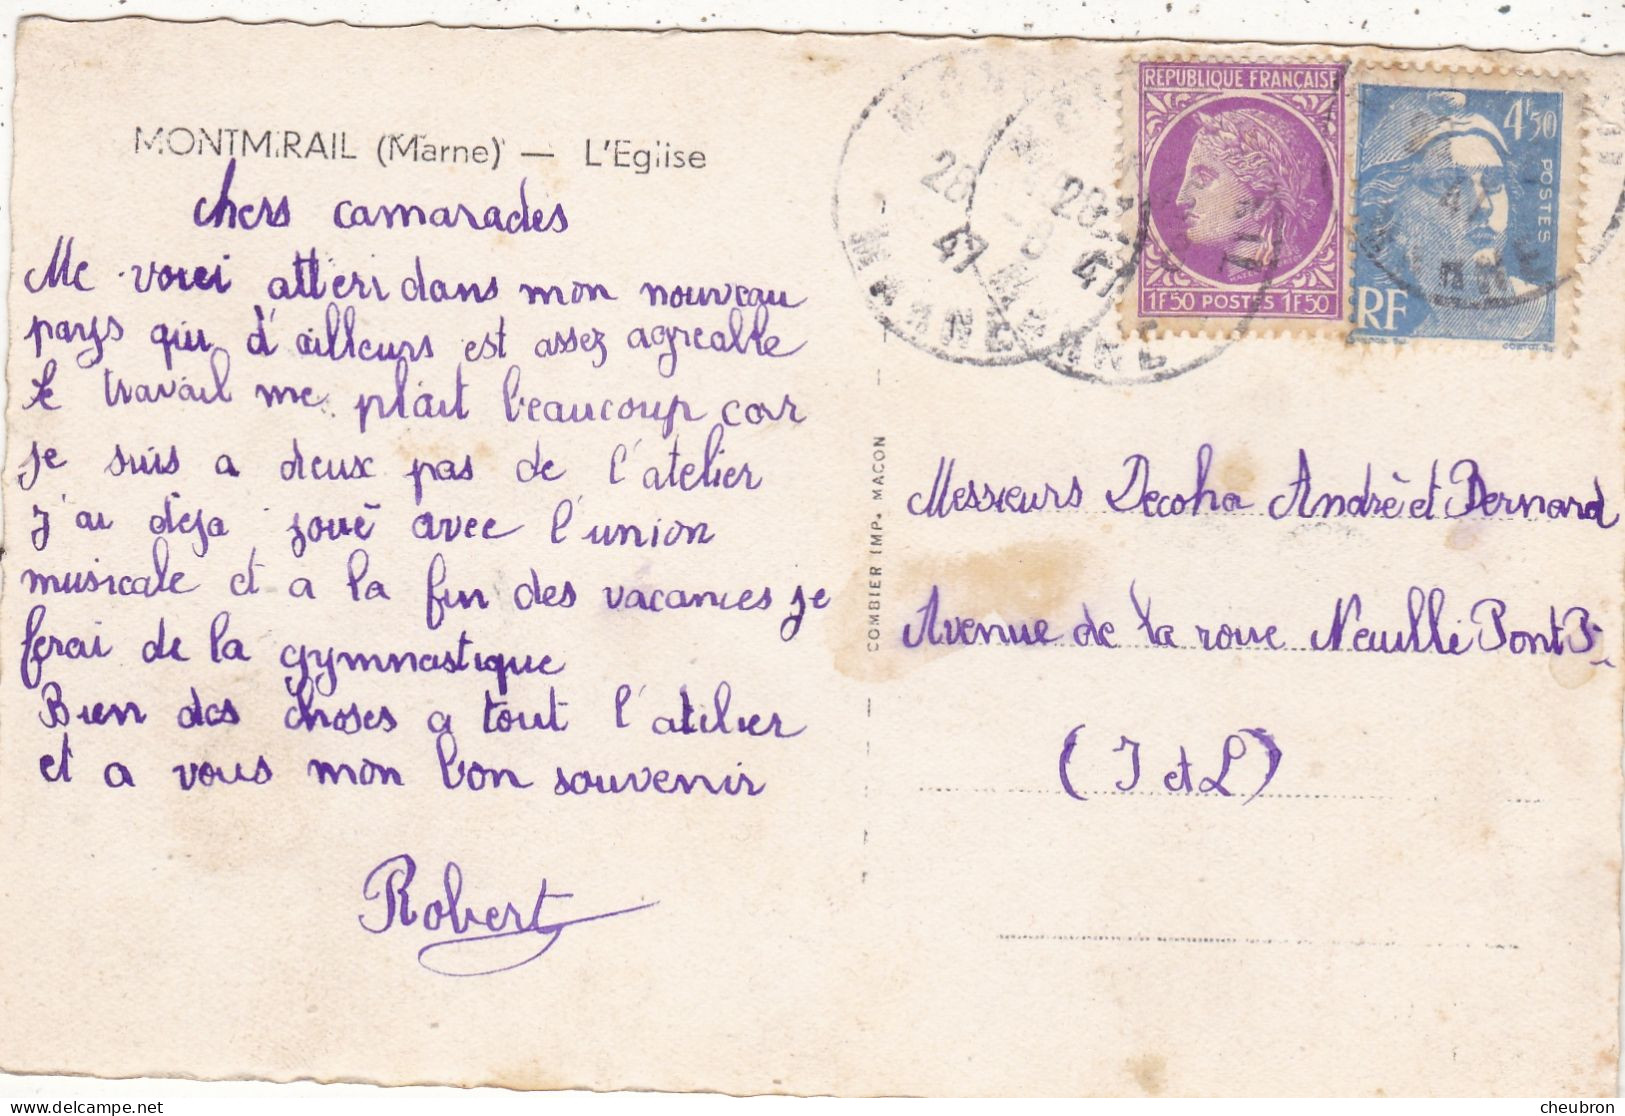 MONTMIRAIL (Marne) — L'Eglise
chers camarades
Me voici atteri dans mon nouveau
pays qui d'ailleurs est assez agreable
Le travail me plait beaucoup car
je suis a deux pas de l'atelier
J'ai dèja joué avec l'union
musicale et a la fin des vacances je
ferai de la gymnastique
Bien des choses a tout l'atelier
et a vous mon bon souvenir
Robert
COMBIER IMP. MACON
REPUBLIQUE FRANÇAISE
1F50 POSTES 1F50
4F50
POSTES
RF
28
47
MARNE
28
47
MARNE
47
Messieurs Decoha Andrè et Bernard
Avenue de la roue Neuilli Pont P.
(I et L)
cheubron.com